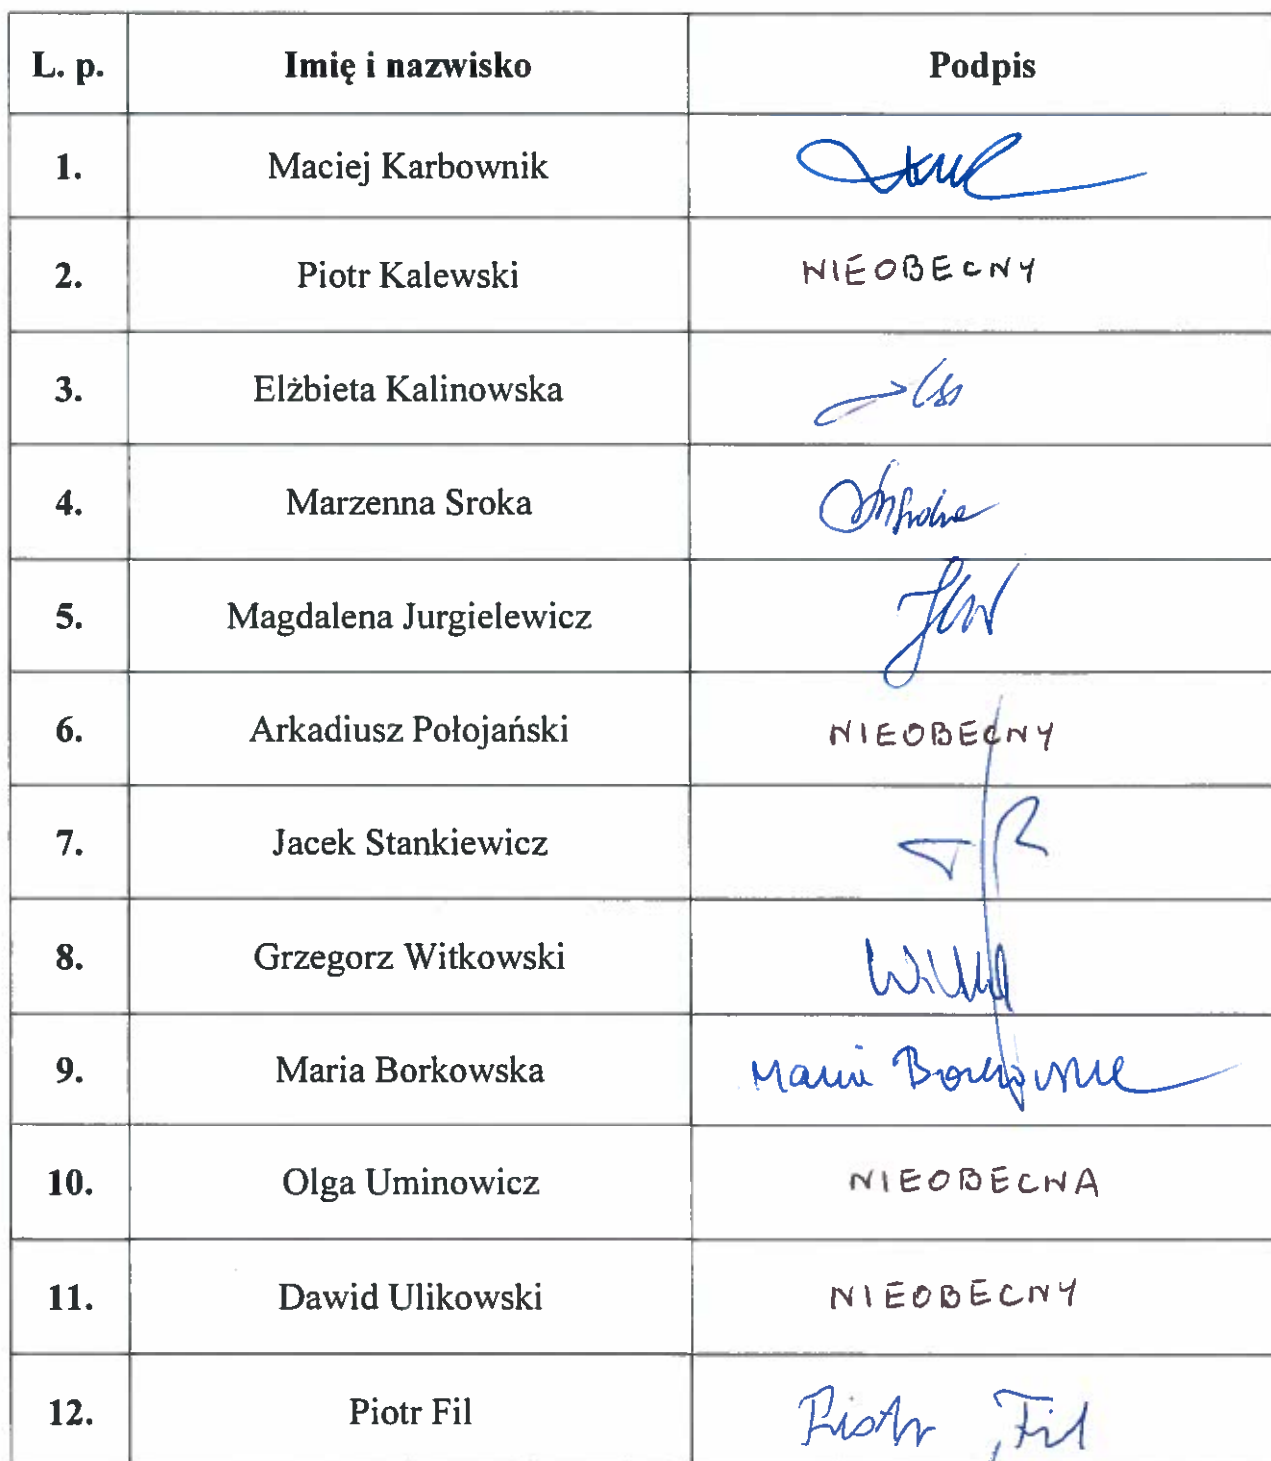 L. p. Imię i nazwisko Podpis
1. Maciej Karbownik
2. Piotr Kalewski NIEOBECNY
3. Elżbieta Kalinowska
4. Marzenna Sroka
5. Magdalena Jurgielewicz
6. Arkadiusz Połojański NIEOBECNY
7. Jacek Stankiewicz
8. Grzegorz Witkowski
9. Maria Borkowska Maria Borkowska
10. Olga Uminowicz NIEOBECNA
11. Dawid Ulikowski NIEOBECNY
12. Piotr Fil Piotr Fil